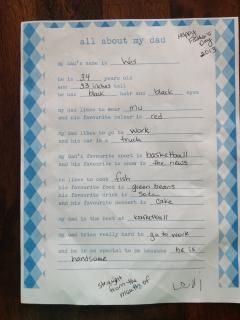 all about my dad
Happy
Father's
Day
2013
my dad's name is Wes
he is 34 years old
and 53 inches tall
he has black hair and black eyes
my dad likes to wear mu
and his favourite colour is red
my dad likes to go to work
and his car is a truck
my dad's favourite sport is basketball
and his favourite tv show is the news
he likes to cook fish
his favourite food is green beans
his favourite drink is soda
and his favourite dessert is cake
my dad is the best at basketball
my dad tries really hard to go to work
and he is so special to me because he is
handsome
straight
from the
mouths of